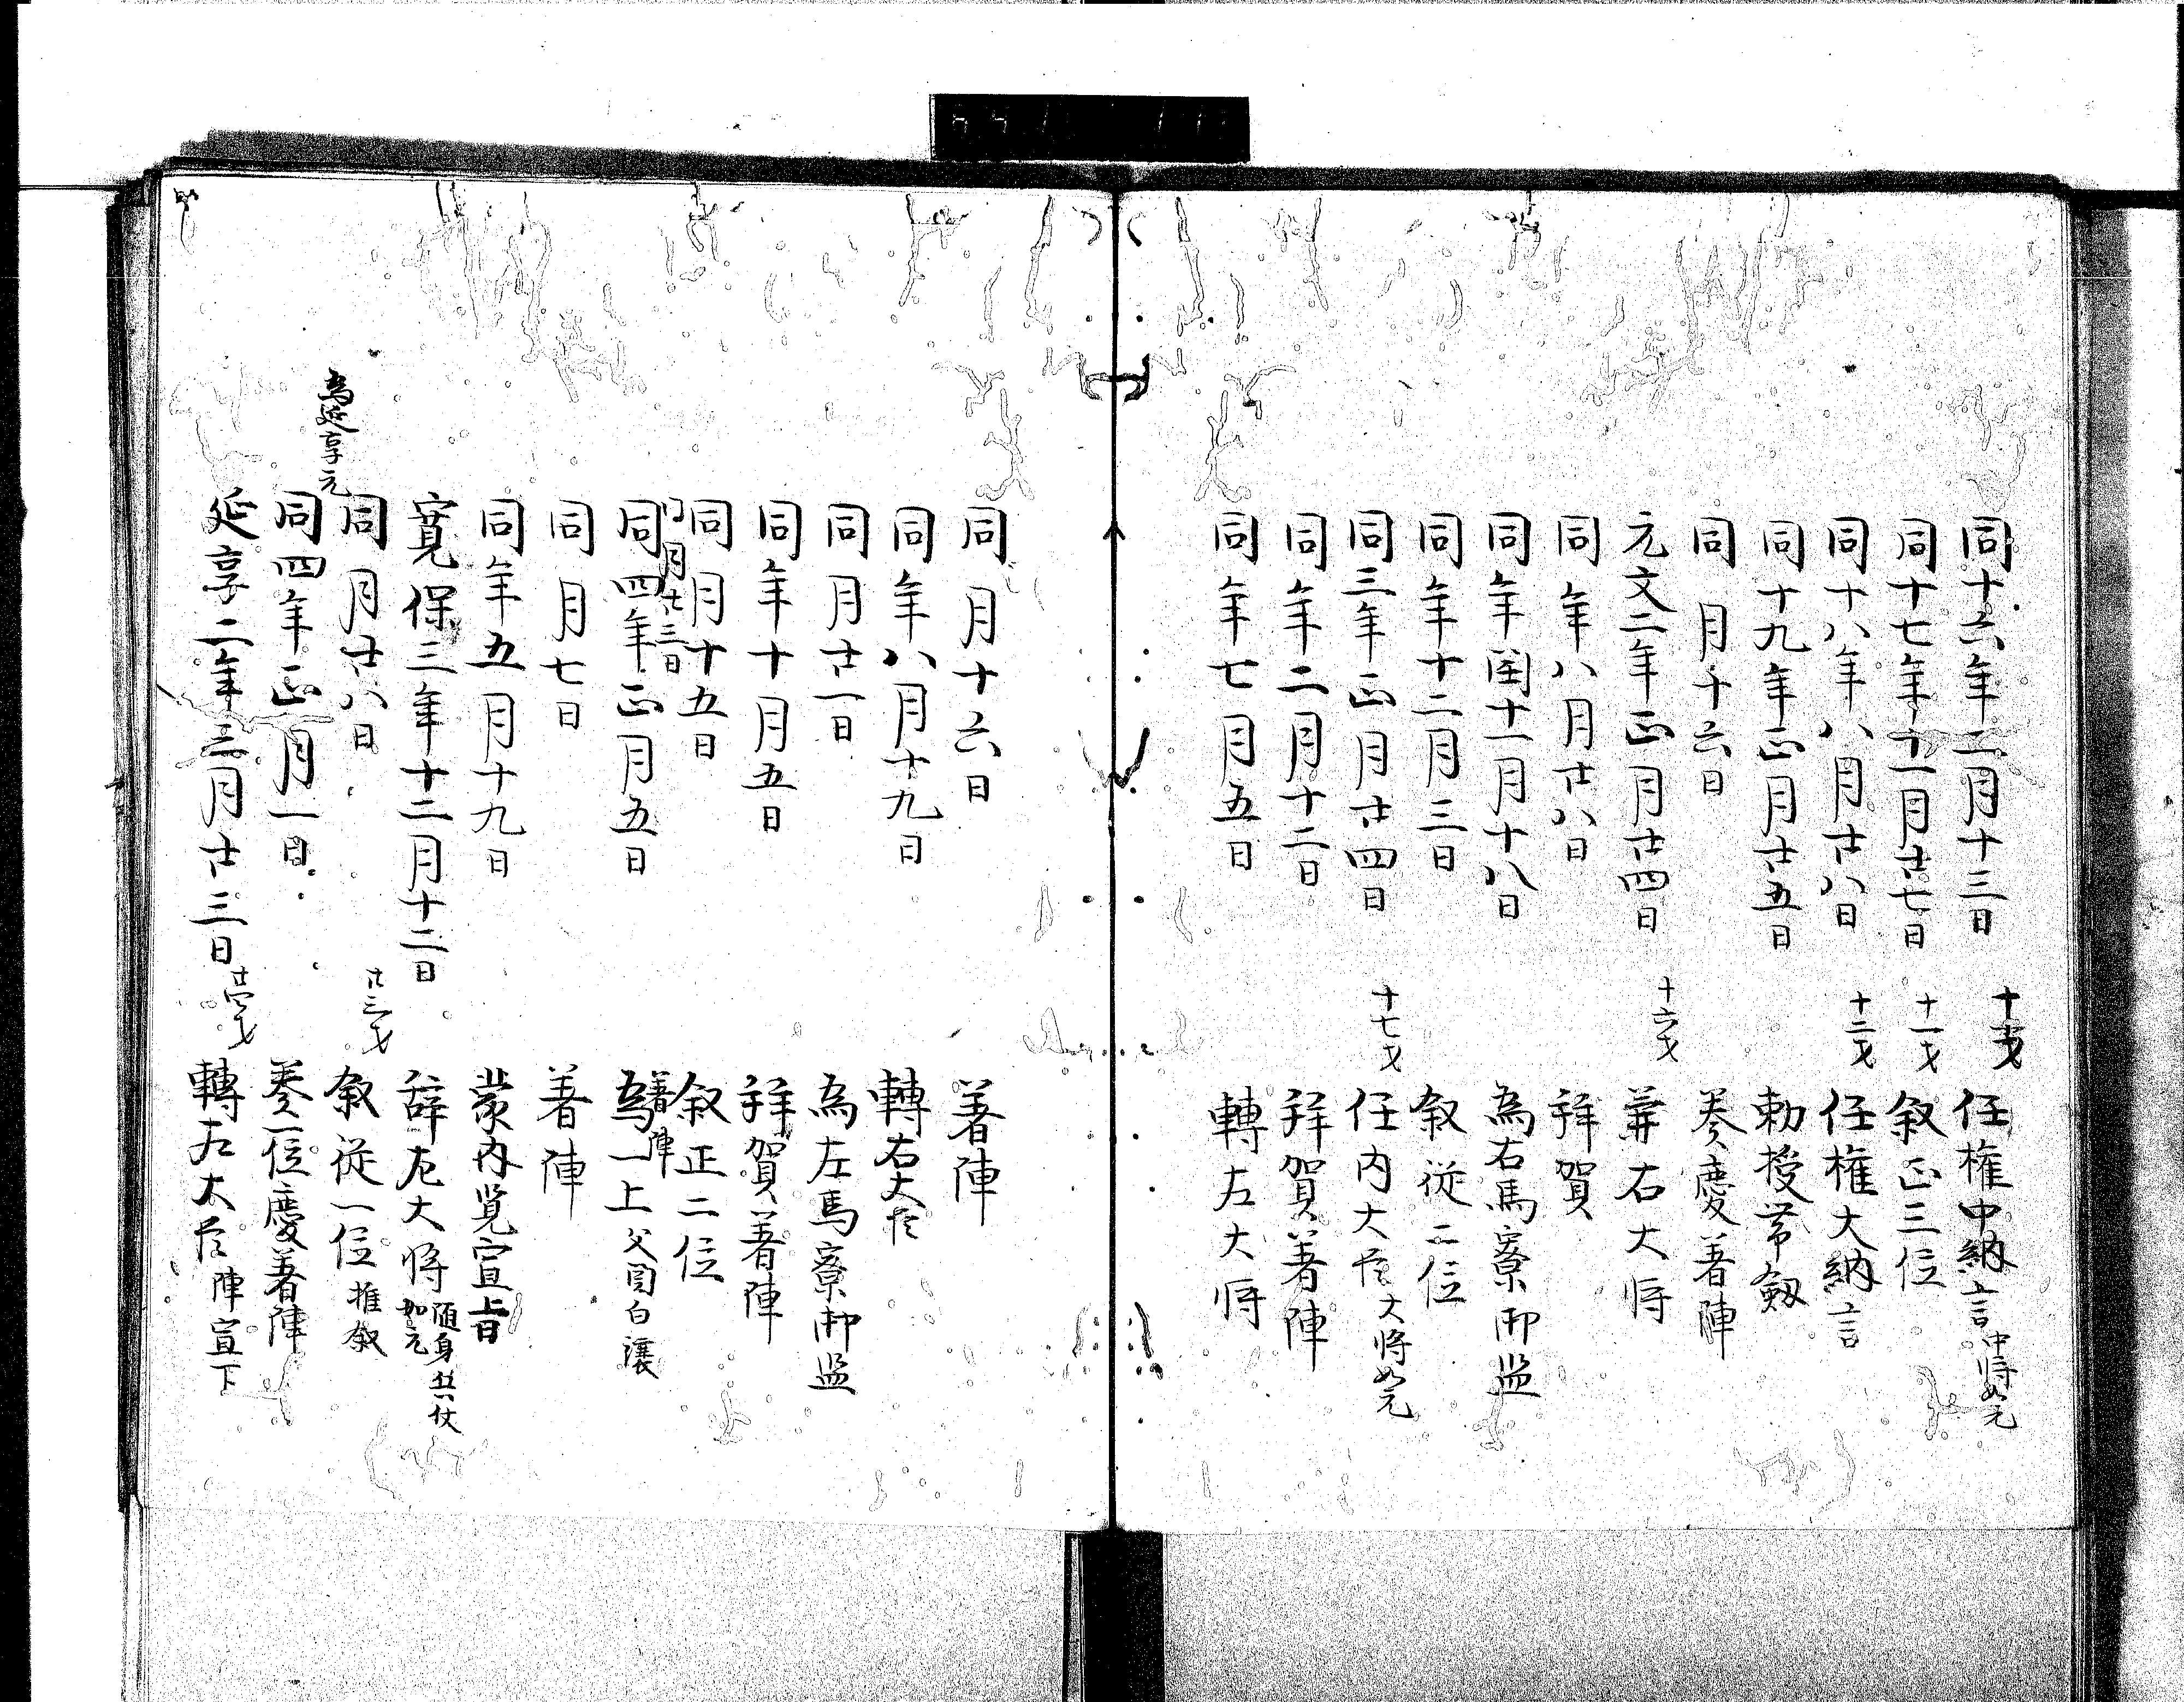 同十六年二月十三日 十才 任權中納言 中將如元
同十七年十一月廿七日 十一才 叙正三位
同十八年八月廿八日 十二才 任權大納言
同十九年正月廿五日 勅授帯劔
同 月廿六日 奏慶著陣
元文二年正月廿四日 十六才 兼右大将
同 年八月廿八日 拜賀
同 年閏十一月十八日 為右馬寮御監
同 年十二月三日 叙従二位
同三年正月廿四日 十七才 任内大臣 大将如元
同 年二月十二日 拜賀著陣
同 年七月五日 轉左大将
同 月十六日 著陣
同 年八月十九日 轉右大臣
同 月廿一日 為左馬寮御監
同 年十月五日 拜賀著陣
同 月十五日 叙正二位
同月廿三日 著陣
同四年正月五日 為一上 父関白讓
同 月七日 著陣
同 年五月十九日 蒙内覧宣旨
寛保三年十二月十二日 辞左大将 随身兵仗如元
同 月廿八日 廿三才 叙従一位 推叙
為延享元
同四年正月一日 奏一位慶著陣
延享二年三月廿三日 廿四才 轉左大臣 陣宣下